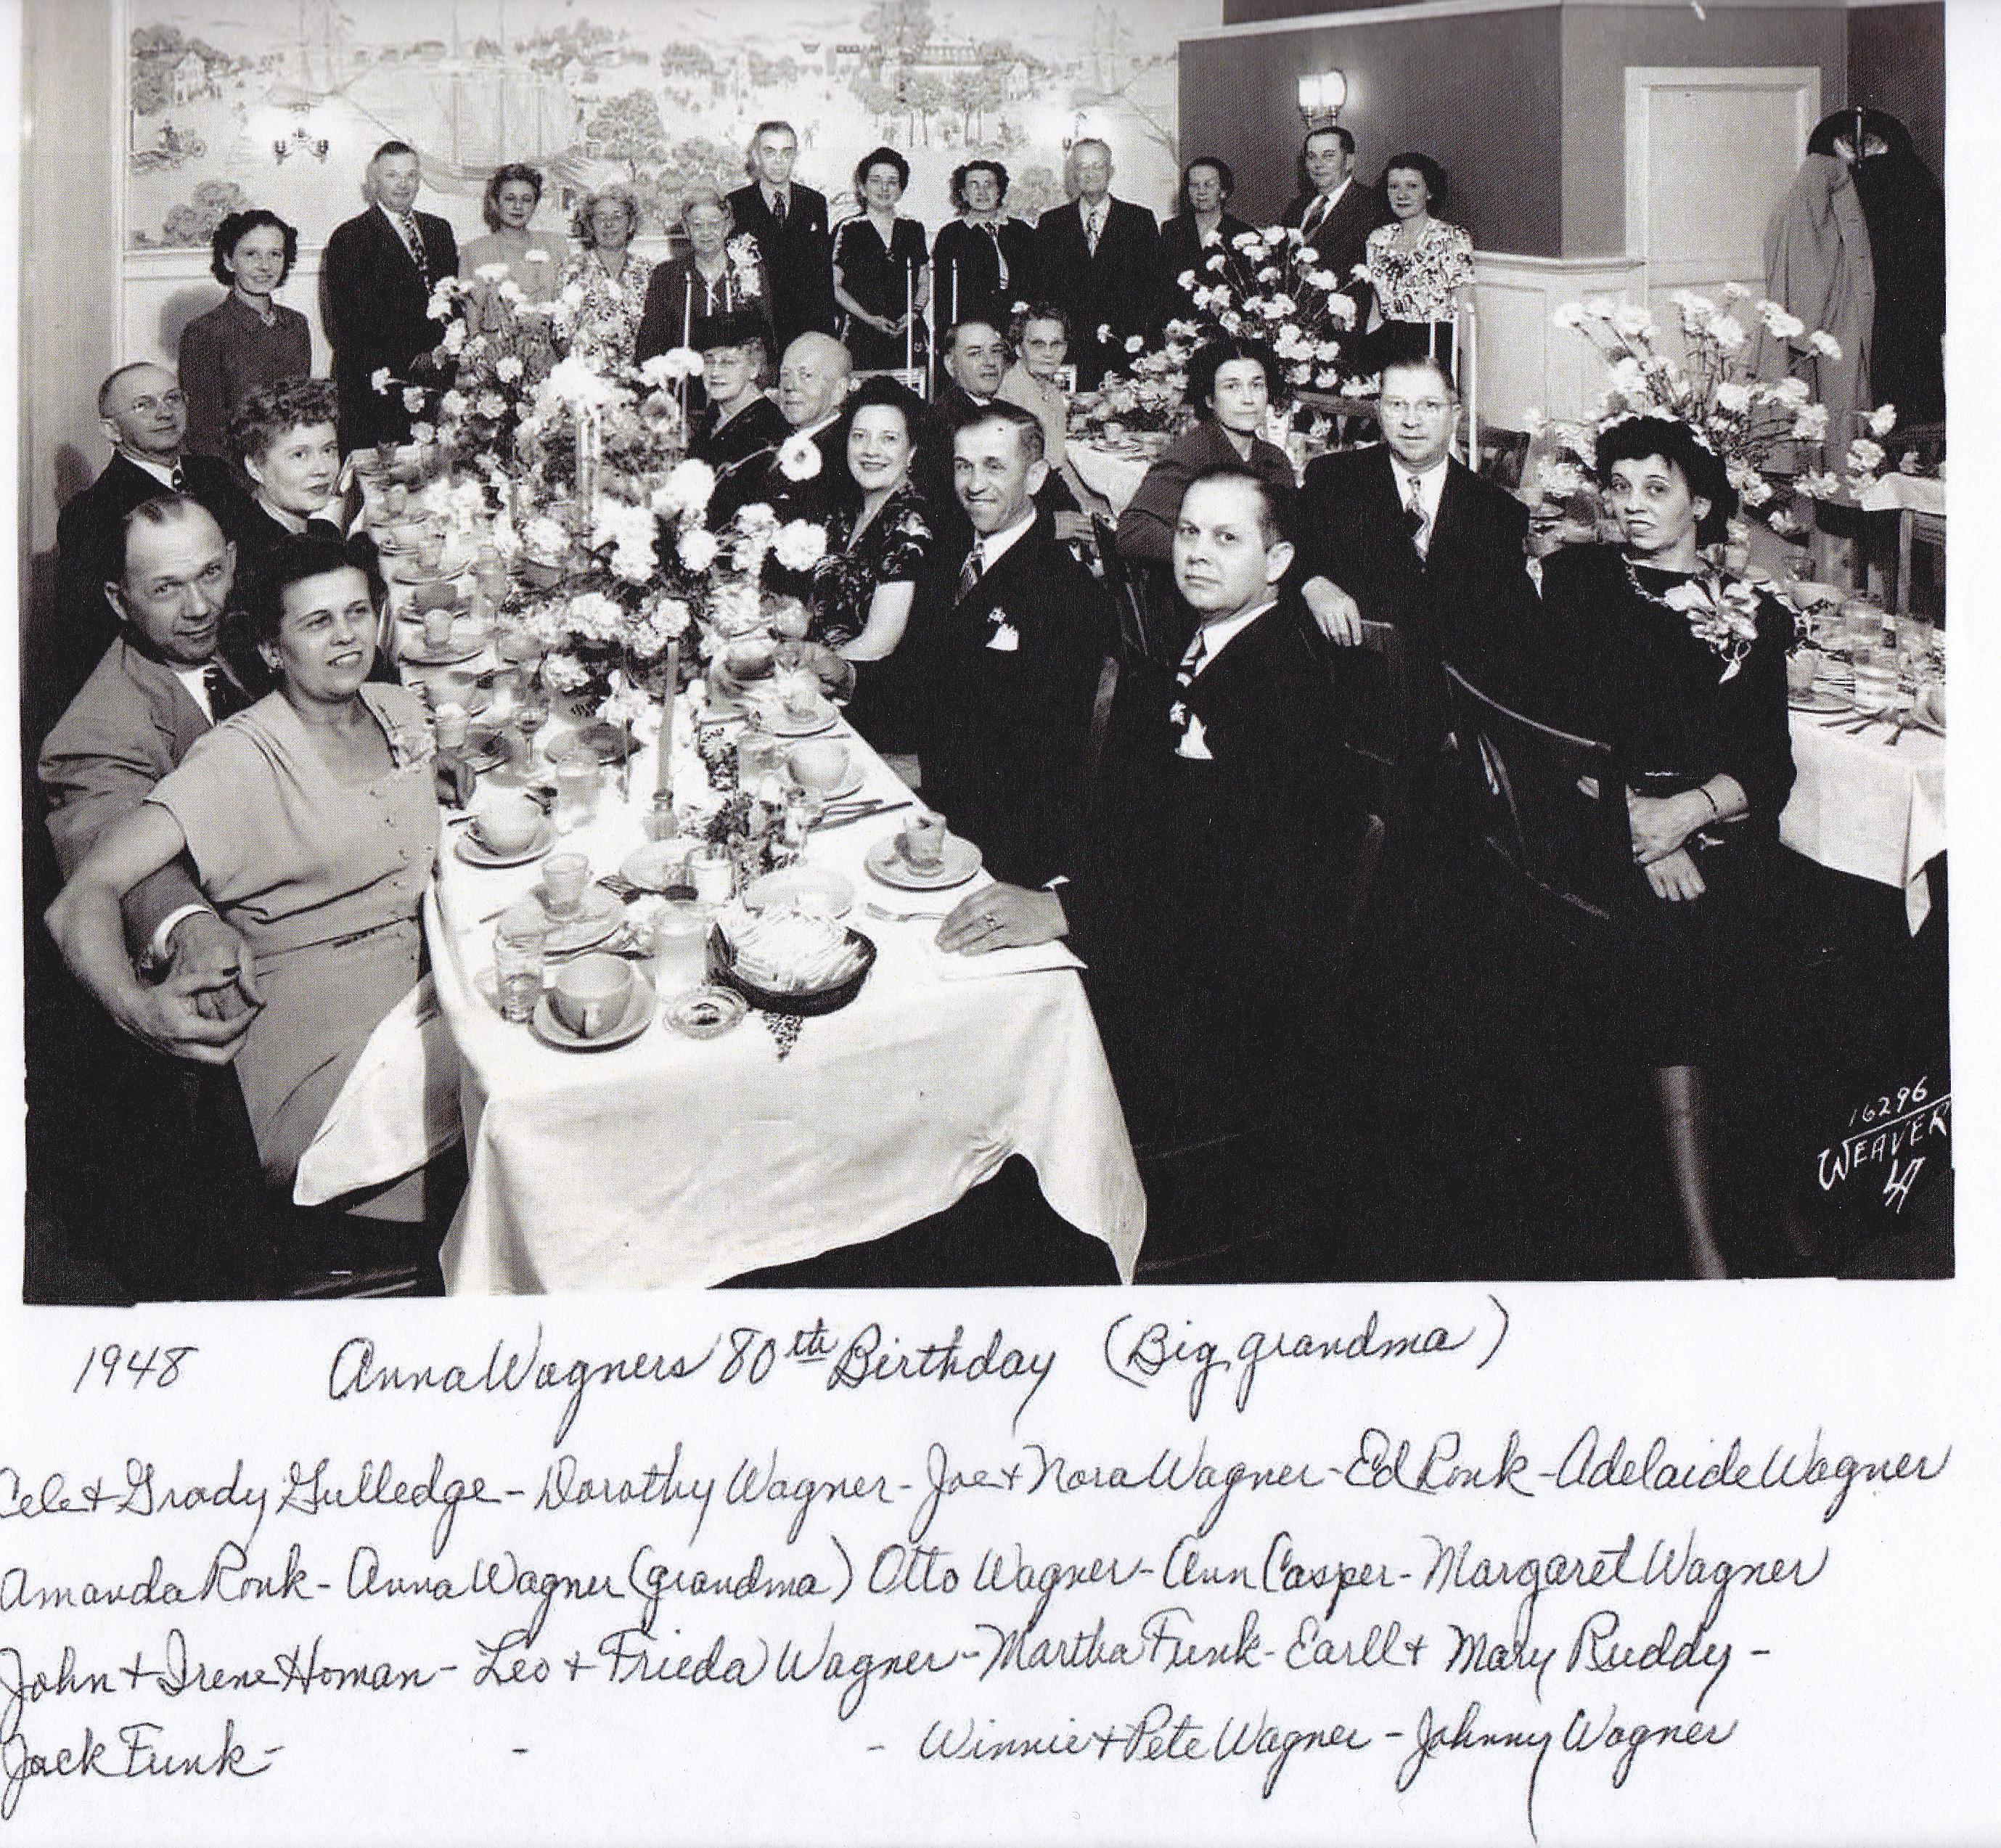 16296
WEAVER
LA
1948 Anna Wagners 80th Birthday (Big grandma)
Cele + Grady Gulledge - Dorothy Wagner - Joe + Nora Wagner - Ed Ronk - Adelaide Wagner
Amanda Ronk - Anna Wagner (grandma) Otto Wagner - Ann Casper - Margaret Wagner
John + Irene Homan - Leo + Frieda Wagner - Martha Funk - Earll + Mary Ruddy -
Jack Funk - - - Winnie + Pete Wagner - Johnny Wagner